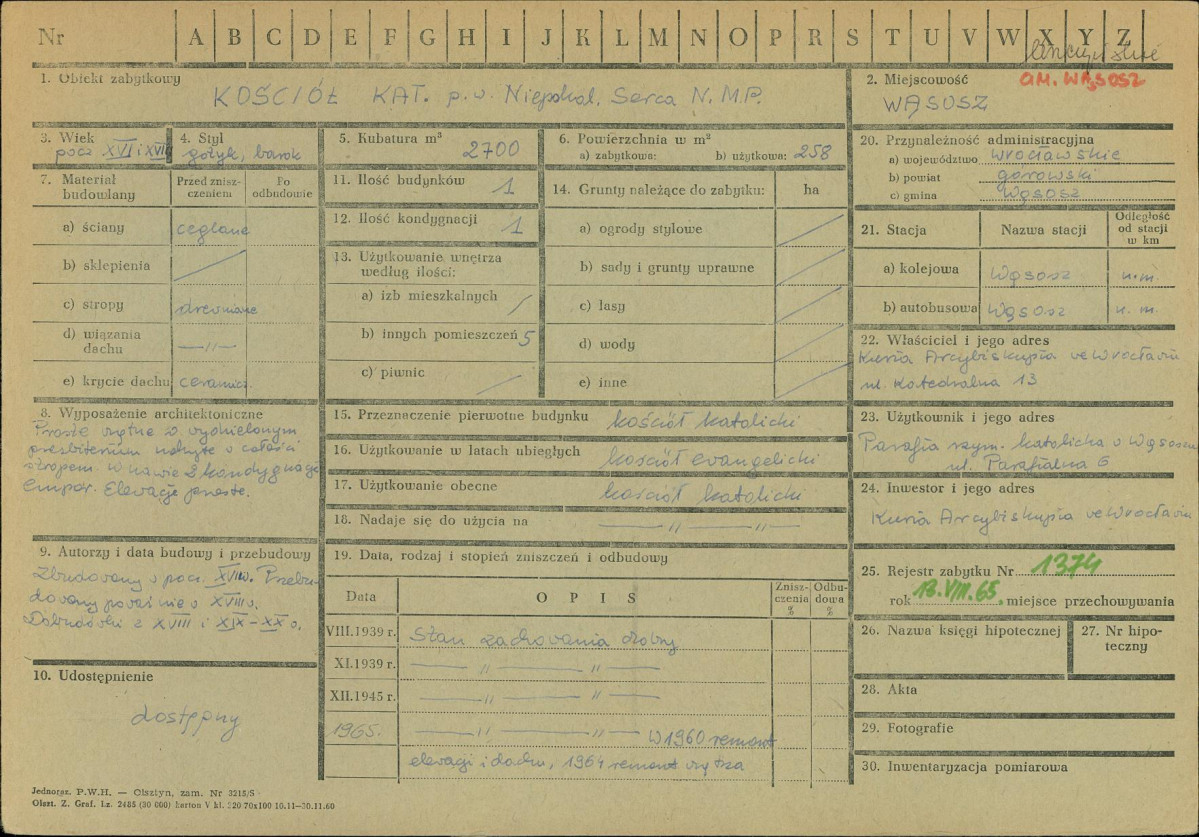 Nr A B C D E F G H I J K L M N O P R S T U V W X Y Z
1. Obiekt zabytkowy
KOŚCIÓŁ KAT. p.w. Niepokal. Serca N.M.P.
2. Miejscowość
GM. WĄSOSZ
WĄSOSZ
3. Wiek
pocz XVI i XVIII
4. Styl
gotyk, barok
5. Kubatura m³ 2700
6. Powierzchnia w m²
a) zabytkowa: b) użytkowa: 258
7. Materiał budowlany
Przed zniszczeniem
Po odbudowie
a) ściany ceglane
b) sklepienia
c) stropy drewniane
d) wiązania dachu —„—
e) krycie dachu ceramicz.
8. Wyposażenie architektoniczne
Proste wnętrze z wydzielonym
prezbiterium nakryte w całości
stropem. W nawie 2 kondygnacje
empor. Elewacje proste.
9. Autorzy i data budowy i przebudowy
Zbudowany w pocz. XVI w. Przebu-
dowany powaśnie w XVIII w.
Dobudówki z XVIII i XIX-XX w.
10. Udostępnienie
dostępny
11. Ilość budynków 1
12. Ilość kondygnacji 1
13. Użytkowanie wnętrza
według ilości:
a) izb mieszkalnych
b) innych pomieszczeń 5
c) piwnic
14. Grunty należące do zabytku: ha
a) ogrody stylowe
b) sady i grunty uprawne
c) lasy
d) wody
e) inne
15. Przeznaczenie pierwotne budynku kościół katolicki
16. Użytkowanie w latach ubiegłych kościół ewangelicki
17. Użytkowanie obecne kościół katolicki
18. Nadaje się do użycia na —„—„—
19. Data, rodzaj i stopień zniszczeń i odbudowy
Data OPIS Zniszczenia % Odbudowa %
VIII.1939 r. Stan zachowania dobry
XI.1939 r. —„—„—
XII.1945 r. —„—„—
1965. —„—„— W 1960 remont
elewacji i dachu, 1964 remont wnętrza
20. Przynależność administracyjna
a) województwo wrocławskie
b) powiat górowski
c) gmina Wąsosz
21. Stacja Nazwa stacji Odległość od stacji w km
a) kolejowa Wąsosz n.m.
b) autobusowa Wąsosz n.m.
22. Właściciel i jego adres
Kuria Arcybiskupia we Wrocławiu
ul. Katedralna 13
23. Użytkownik i jego adres
Parafia rzym. katolicka w Wąsoszu
ul. Parafialna 6
24. Inwestor i jego adres
Kuria Arcybiskupia we Wrocławiu
25. Rejestr zabytku Nr 1374
rok 18.VIII.65. miejsce przechowywania
26. Nazwa księgi hipotecznej
27. Nr hipoteczny
28. Akta
29. Fotografie
30. Inwentaryzacja pomiarowa
Jednoraz. P.W.H. — Olsztyn, zam. Nr 3215/S
Olszt. Z. Graf. Lz. 2485 (30 000) karton V kl. 220 70x100 10.11—30.11.60